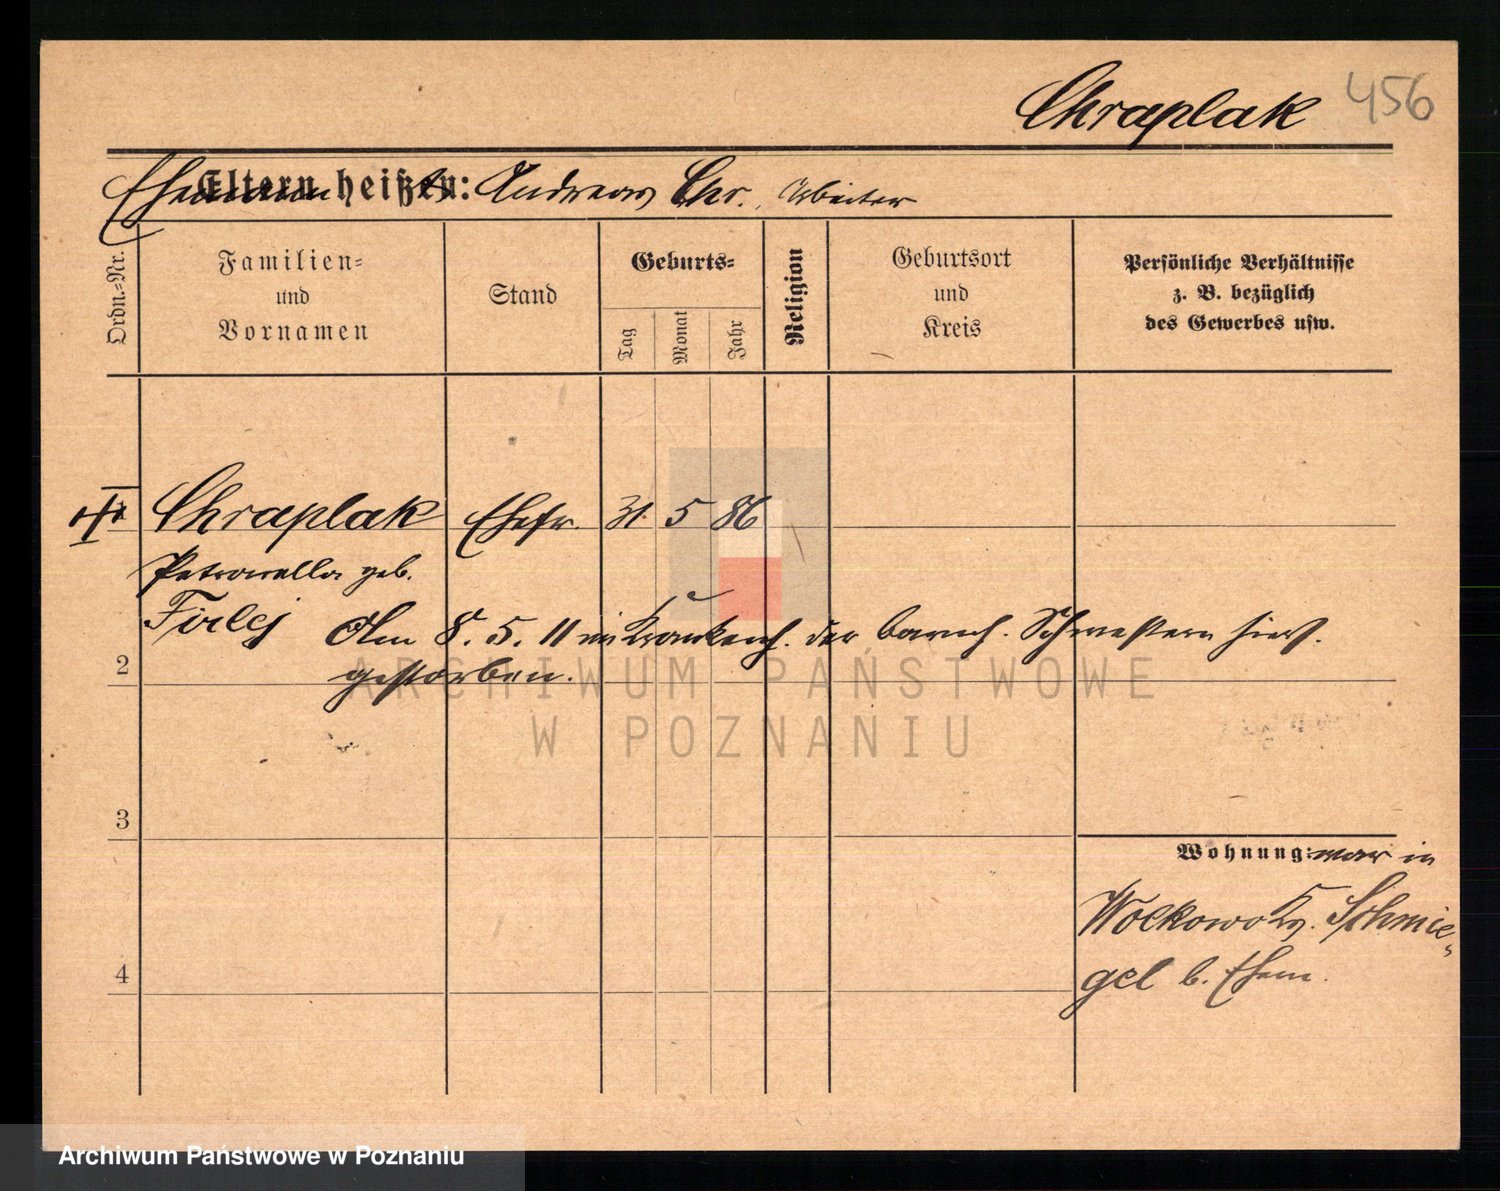 Chraplak 456
Ehemann Eltern heißen: Andreas Chr. Arbeiter
Ordn.-Nr.
Familien-
und
Vornamen
Stand
Geburts-
Tag
Monat
Jahr
Religion
Geburtsort
und
Kreis
Persönliche Verhältnisse
z. B. bezüglich
des Gewerbes usw.
Chraplak Ehefr. 31. 5 86
Petronella geb.
Firlej
Am 8. 5. 11 im Krankenh. der barmh. Schwestern hier.
gestorben.
2
3
4
Wohnung: war in
Wolkowo Kr. Schmie-
gel b. Ehem.
ARCHIWUM PAŃSTWOWE
W POZNANIU
Archiwum Państwowe w Poznaniu